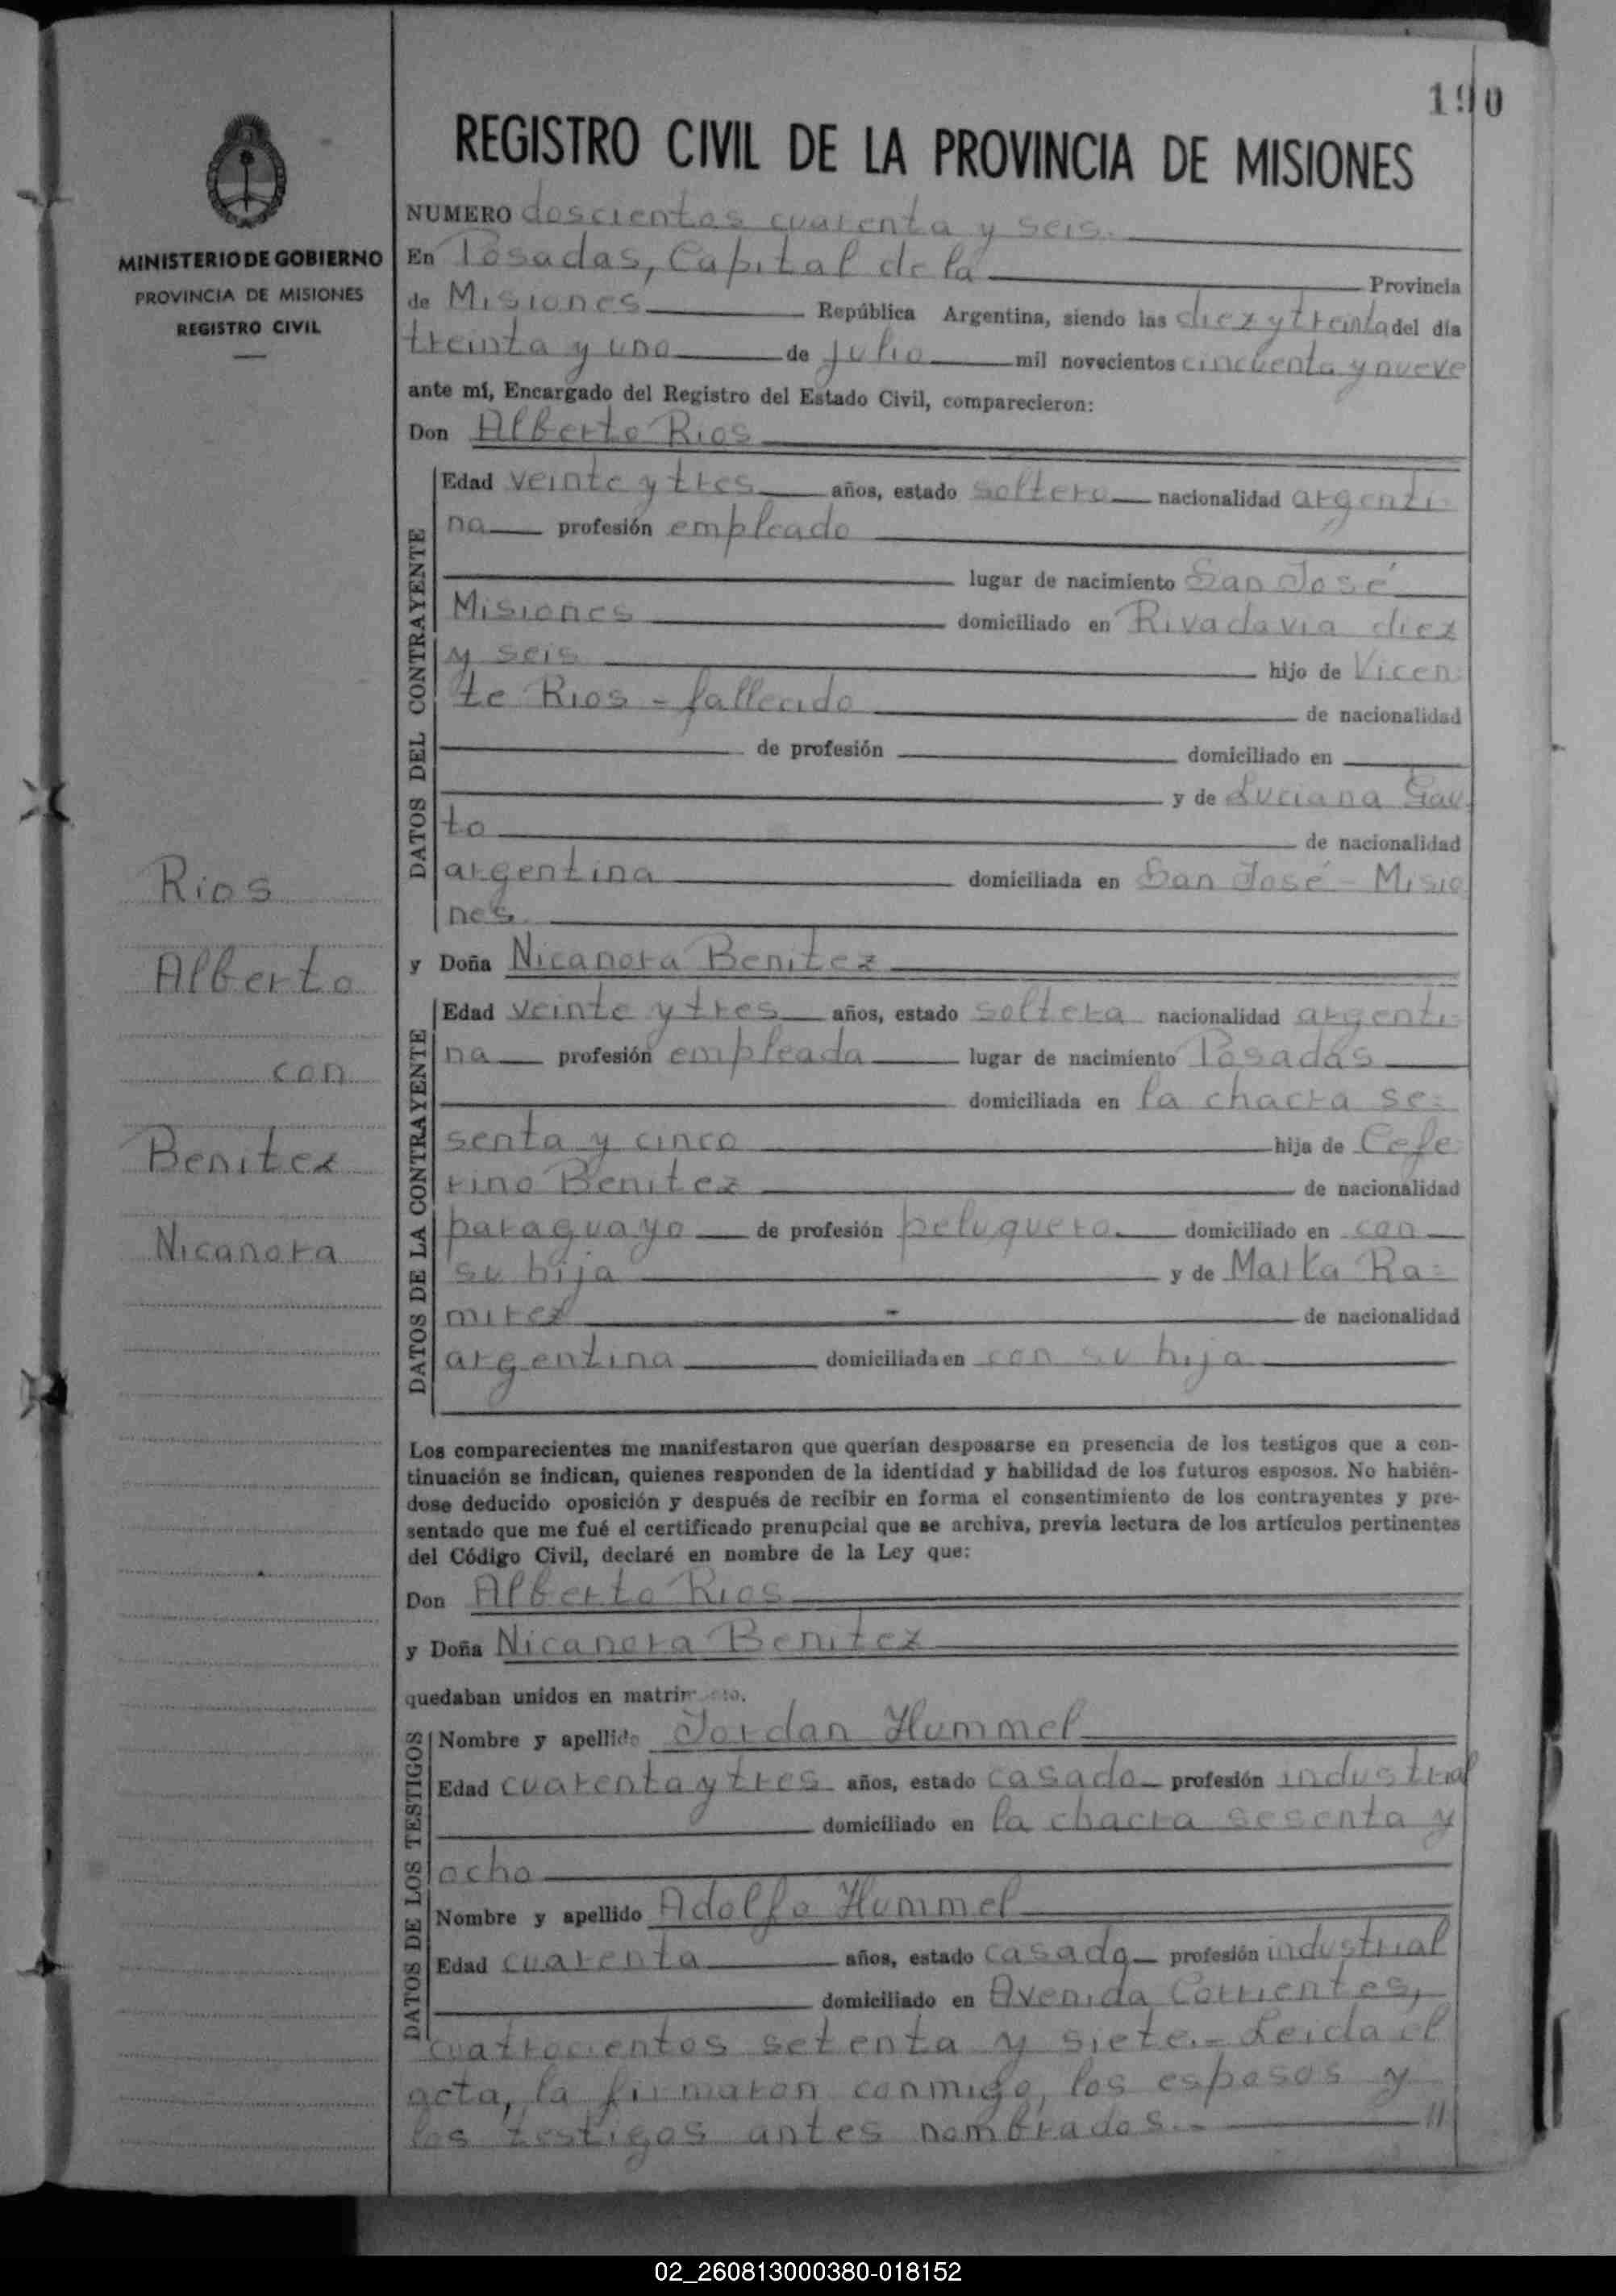 190
REGISTRO CIVIL DE LA PROVINCIA DE MISIONES
MINISTERIO DE GOBIERNO
PROVINCIA DE MISIONES
REGISTRO CIVIL
NUMERO doscientos cuarenta y seis.
En Posadas, Capital de la Provincia
de Misiones República Argentina, siendo las diez y treinta del día
treinta y uno de julio mil novecientos cincuenta y nueve
ante mí, Encargado del Registro del Estado Civil, comparecieron:
Don Alberto Rios
DATOS DEL CONTRAYENTE
Edad veinte y tres años, estado soltero nacionalidad argenti-
na profesión empleado
lugar de nacimiento San José
Misiones domiciliado en Rivadavia diez
y seis hijo de Vicen
te Rios - fallecido de nacionalidad
de profesión domiciliado en
y de Luciana Gau
to de nacionalidad
argentina domiciliada en San José - Misio
nes
y Doña Nicanora Benitez
DATOS DE LA CONTRAYENTE
Edad veinte y tres años, estado soltera nacionalidad argenti-
na profesión empleada lugar de nacimiento Posadas
domiciliada en la chacra se=
senta y cinco hija de Cefe
rino Benitez de nacionalidad
paraguayo de profesión peluquero domiciliado en con
su hija y de Marta Ra=
mirez de nacionalidad
argentina domiciliada en con su hija
Rios
Alberto
con
Benitez
Nicanora
Los comparecientes me manifestaron que querían desposarse en presencia de los testigos que a con-
tinuación se indican, quienes responden de la identidad y habilidad de los futuros esposos. No habién-
dose deducido oposición y después de recibir en forma el consentimiento de los contrayentes y pre-
sentado que me fué el certificado prenupcial que se archiva, previa lectura de los artículos pertinentes
del Código Civil, declaré en nombre de la Ley que:
Don Alberto Rios
y Doña Nicanora Benitez
quedaban unidos en
DATOS DE LOS TESTIGOS
Nombre y apellido Jordan Hummel
Edad cuarenta y tres años, estado casado profesión industrial
domiciliado en la chacra sesenta y
ocho
Nombre y apellido Adolfo Hummel
Edad cuarenta años, estado casado profesión industrial
domiciliado en Avenida Corrientes,
cuatrocientos setenta y siete.= Leida el
acta, la firmaron conmigo, los esposos y
los testigos antes nombrados.- //
02_260813000380-018152